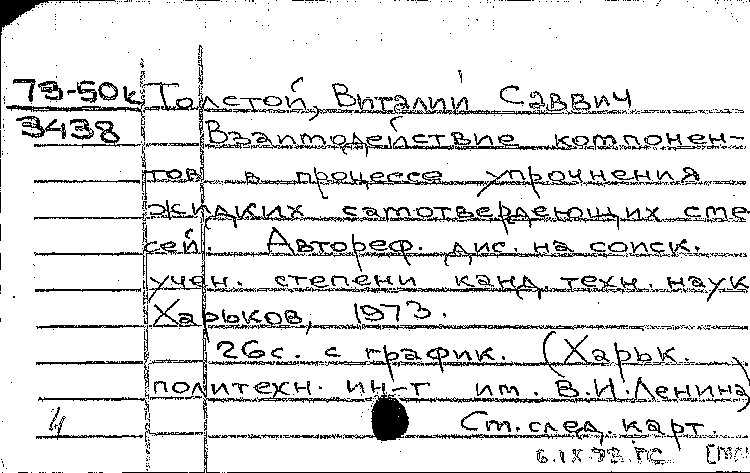 73-50к Толстой, Виталий Саввич
3438 Взаимодействие компонен-
тов в процессе упрочнения
жидких самотвердеющих сме
сей. Автореф. дис. на соиск.
учен. степени канд. техн. наук
Харьков, 1973.
26с. с график. (Харьк.
политехн. ин-т им. В.И.Ленина)
4 Ст. след. карт.
6.IX.73.ГС